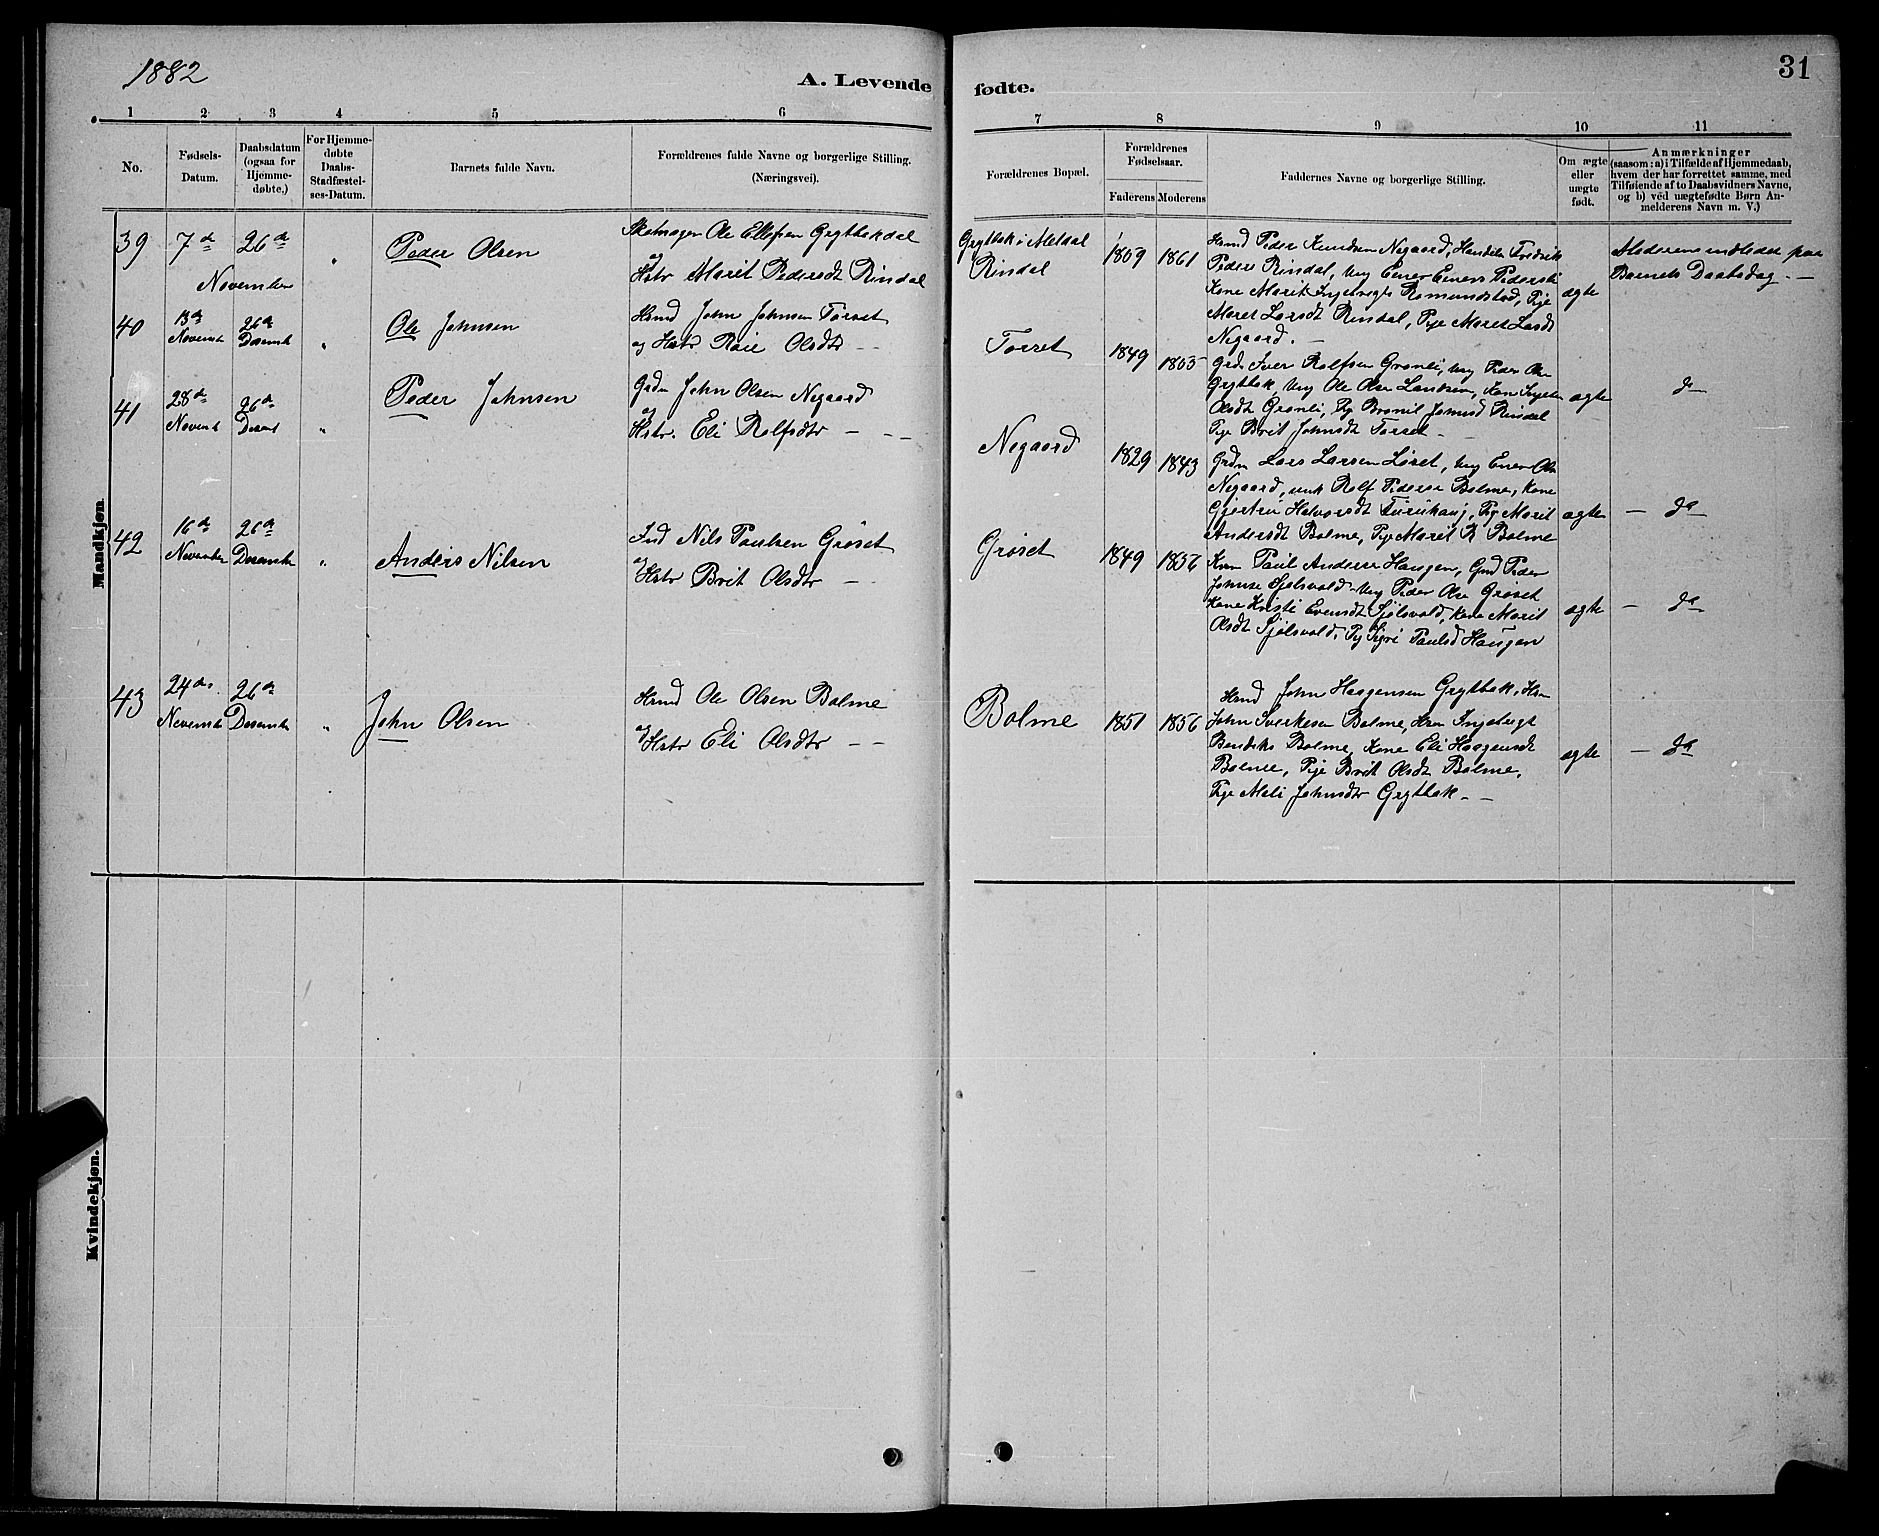 1882
A. Levende
fødte.
31
1 2 3 4 5 6 7 8 9 10 11
No.
Fødsels-
Datum.
Daabsdatum
(ogsaa for
Hjemme-
døbte,)
For Hjemme-
døbte
Daabs-
Stadfæstel-
ses-Datum.
Barnets fulde Navn.
Forældrenes fulde Navne og borgerlige Stilling.
(Næringsvei).
Forældrenes Bopæl.
Forældrenes
Fødselsaar.
Faderens Moderens
Faddernes Navne og borgerlige Stilling.
Om ægte
eller
uægte
født.
Anmærkninger
(saasom: a) i Tilfælde af Hjemmedaab,
hvem der har forrettet samme, med
Tilføiende af to Daabsvidners Navne,
og b) ved uægtefødte Børn An-
melderens Navn m. V.)
Mandkjøn.
39
7de
November
26de
"
Peder Olsen
Skomager Ole Ellefsen Grytbakdal
og
Hstr Marit Pedersdt Rindal
Grytbak i Meldal
Rindal
1859 1861
Hsmd Peder Knudsen Negaard, Handels Fredrik
Peders Rindal, Ung Einer Einers Pederst
Kone Marit Ingebregts Romundstad, Pige
Maret Larsdt Rindal, Pige Maret Larsdt
Negaard. –
ægte
Moderen indledet paa
Barnets Daabsdag. –
40
13de
Novemb
26de
Desemb
"
Ole Johnsen
Hsmd John Johnsen Torset
og Hstr Roie Olsdtr –
Torset
1849 1855
Grdm Iver Rolfsen Grønli, Ung Peder Ole
Grytbak, Ung Ole Olse Landsem, Kon
Olsdt Grønli, Pg Brønil Johnsd Rindal
Pige Brit Johnsdt Torset –
ægte
do
41
28de
Novemb
26de
Desemb
"
Peder Johnsen
Grdm John Olsen Negaard
og
Hstr. Eli Rolfsdtr – – –
Negaard
1829 1843
Grdm Lars Larsen Løset, Ung Ener Ole
Negaard, unk Rolf Pederse Bolme, Kone
Gjertru Halvorsdt Furuhaug, Pig Marit
Andersdt Bolme, Pige Marit R Bolme
ægte
– do
42
16de
November
26de
Desember
"
Anders Nilsen
Ind Nils Paulsen Grøset
og
Hstr Brit Olsdtr –
Grøset
1849 1856
Krm Paul Anderse Haugen, Gmd Peder
Johnse Sjølsvold – Ung Peder Ole Grøset
Kone Kristi Evensdt Sjølsvold, Kone Marit
Olsdt Sjølsvold, Pg Sigri Paulsd Haugen
ægte
– do
43
24de
Novemb
26de
Desemb
"
John Olsen
Hsmd Ole Olsen Bolme
og
Hstr Eli Olsdtr – –
Bolme
1851 1856
Hsmd John Haagensen Grytbak, Hsm
John Sverkesen Bolme, Hsm Ingebrigt
Bendiks Bolme, Kone Eli Haagensdt
Bolme, Pige Brit Olsdt Bolme,
Pige Mali Johnsdtr Grytbak – –
ægte
– do
Kvindekjøn.